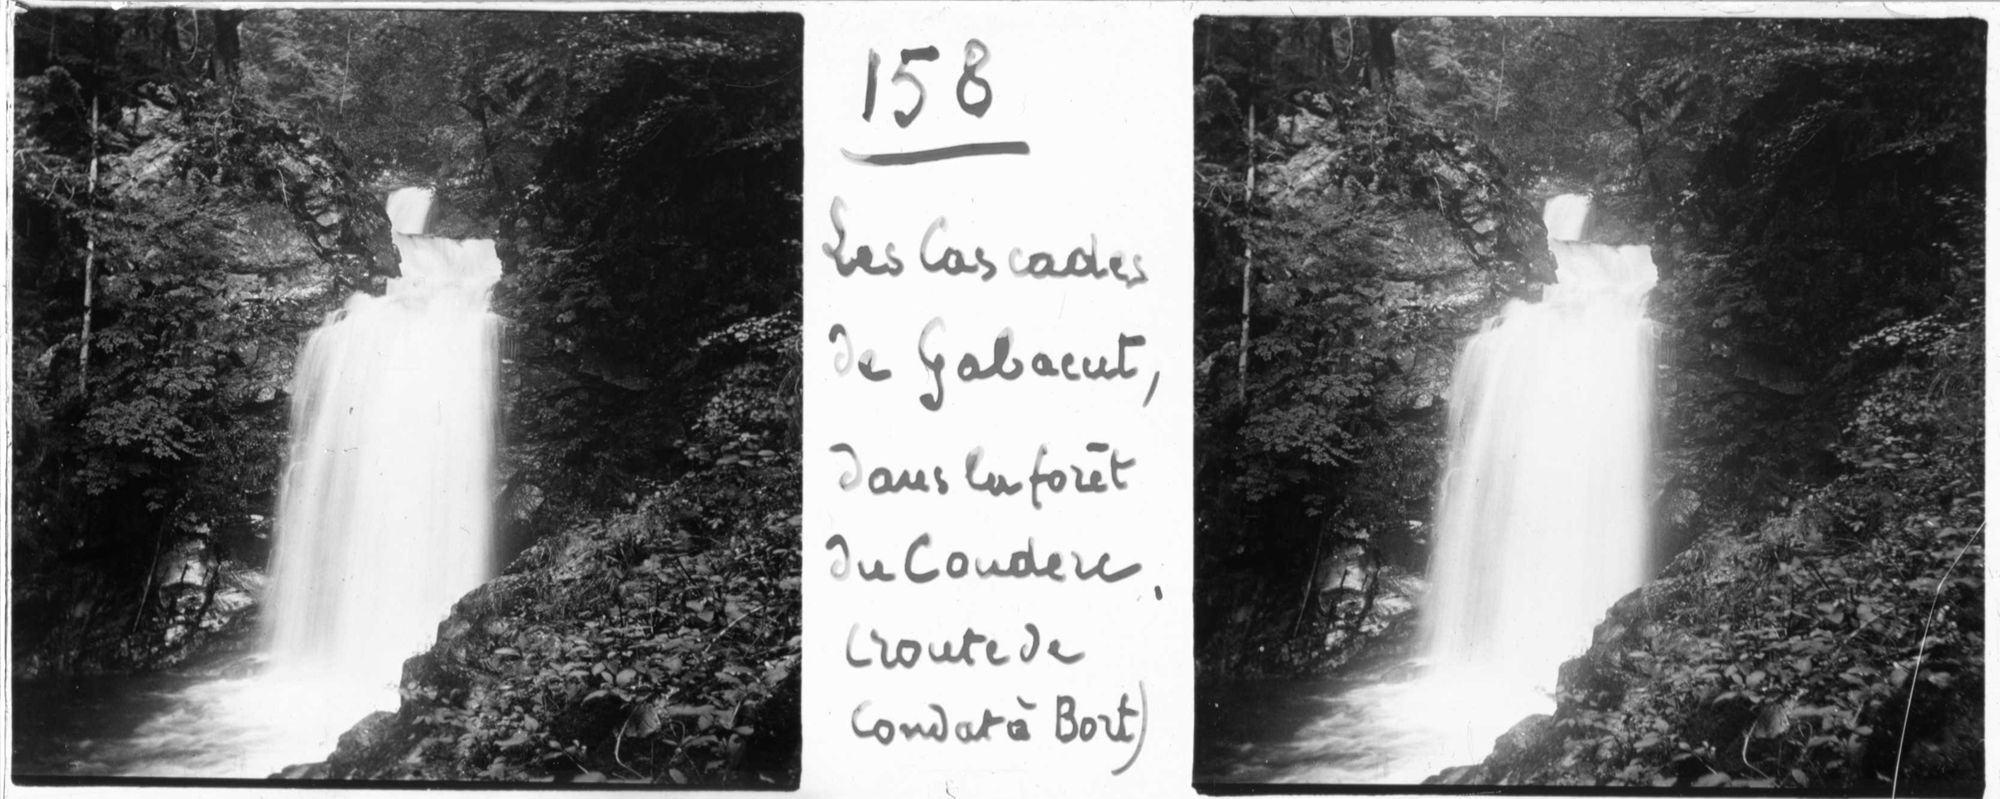 158
Les Cascades
de Gabacut,
dans la forêt
du Couderc.
(route de
Condat à Bort)